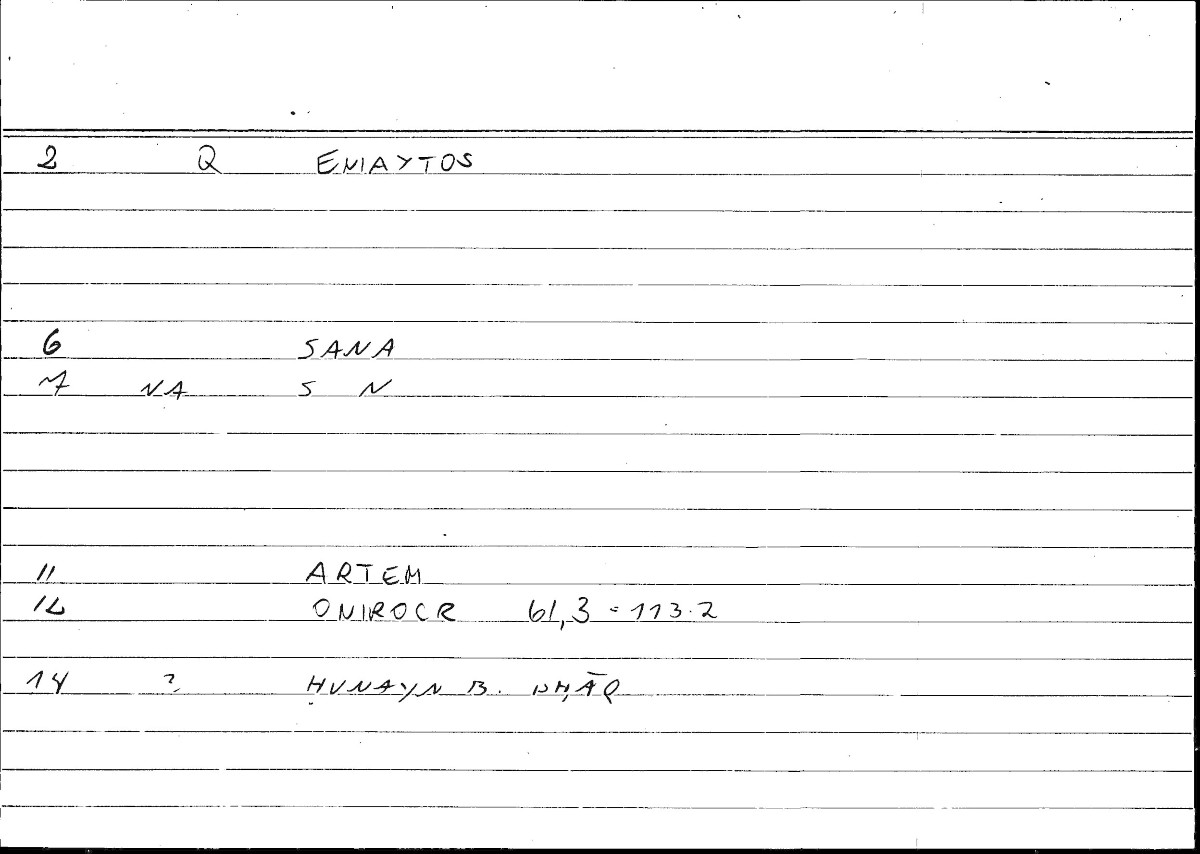 2 Q ENIAYTOS
6 SANA
7 NA S N
11 ARTEM
12 ONIROCR 61,3 = 113.2
14 ? ḤUNAYN B. ISḤĀQ